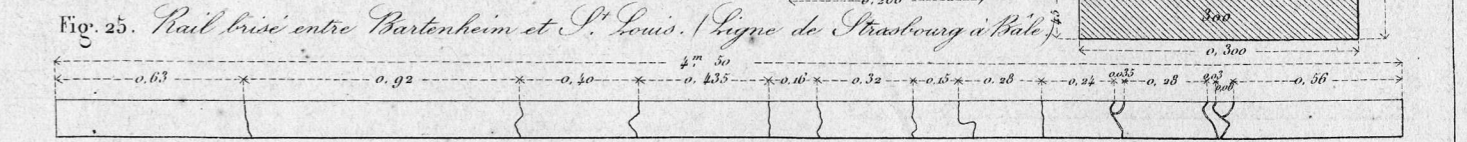 0,200
Fig. 25. Rail brisé entre Bartenheim et St. Louis. (Ligne de Strasbourg à Bâle)
300
0,300
4m,50
0,63 0,92 0,40 0,435 0,16 0,32 0,15 0,28 0,24 0,035 0,28 0,03 0,06 0,56